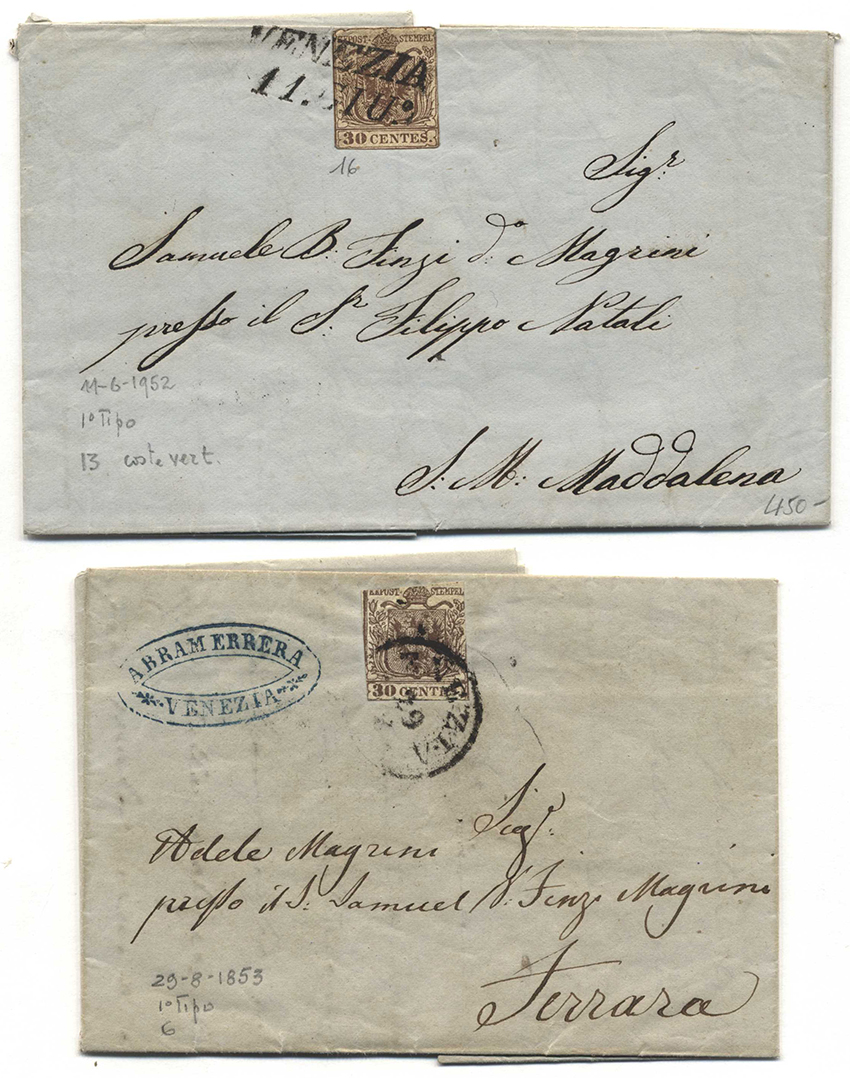 KKPOST-STEMPEL
VENEZIA
11. GIU?
30 CENTES.
16
Sigr
Samuele B. Finzi do Magrini
presso il Sr Filippo Natali
11-6-1952
1° Tipo
13 coste vert.
S. M: Maddalena
450-
KKPOST-STEMPEL
ABRAM ERRERA
VENEZIA
30 CENTES.
VENEZIA
Sigr.
Adele Magrini
presso il S. Samuel Finzi Magrini
29-8-1853
1° Tipo
6
Ferrara